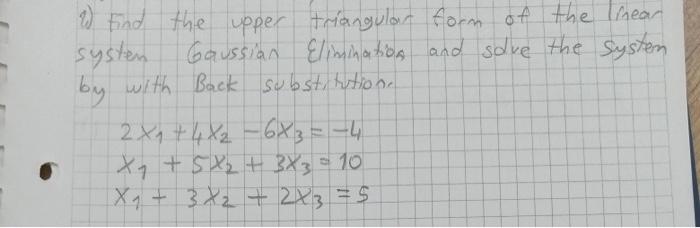 2) Find the upper triangular form of the linear
system Gaussian Elimination and solve the system
by with Back substitution.
2x₁ + 4x₂ - 6x₃ = -4
x₁ + 5x₂ + 3x₃ = 10
x₁ + 3x₂ + 2x₃ = 5